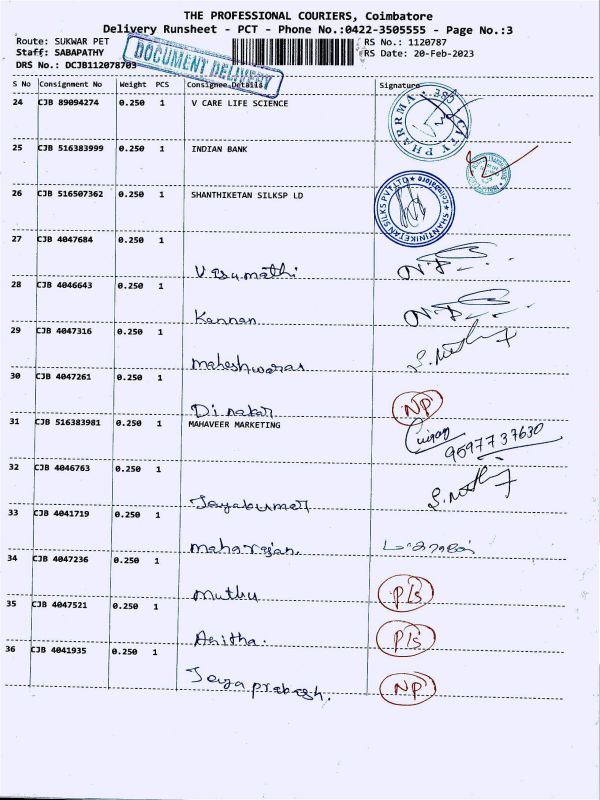 THE PROFESSIONAL COURIERS, Coimbatore
Delivery Runsheet - PCT - Phone No.:0422-3505555 - Page No.:3
Route: SUKWAR PET RS No.: 1120787
Staff: SABAPATHY RS Date: 20-Feb-2023
DRS No.: DCJB112078703
DOCUMENT DELIVERY
S No Consignment No Weight PCS Consignee Details Signature
24 CJB 89094274 0.250 1 V CARE LIFE SCIENCE
CITY PHARRMA CBE
25 CJB 516383999 0.250 1 INDIAN BANK
26 CJB 516507362 0.250 1 SHANTHIKETAN SILKSP LD
SHANTINIKETAN SILKS PVT LTD Coimbatore
27 CJB 4047684 0.250 1
28 CJB 4046643 0.250 1
Kannan
29 CJB 4047316 0.250 1
Maheshwaran
30 CJB 4047261 0.250 1
Dinakar NP
31 CJB 516383981 0.250 1 MAHAVEER MARKETING
9597737630
32 CJB 4046763 0.250 1
Jayakumar
33 CJB 4041719 0.250 1
maharajan
34 CJB 4047236 0.250 1
muthu P/s
35 CJB 4047521 0.250 1
Anitha. P/s
36 CJB 4041935 0.250 1
Jayaprakash. NP